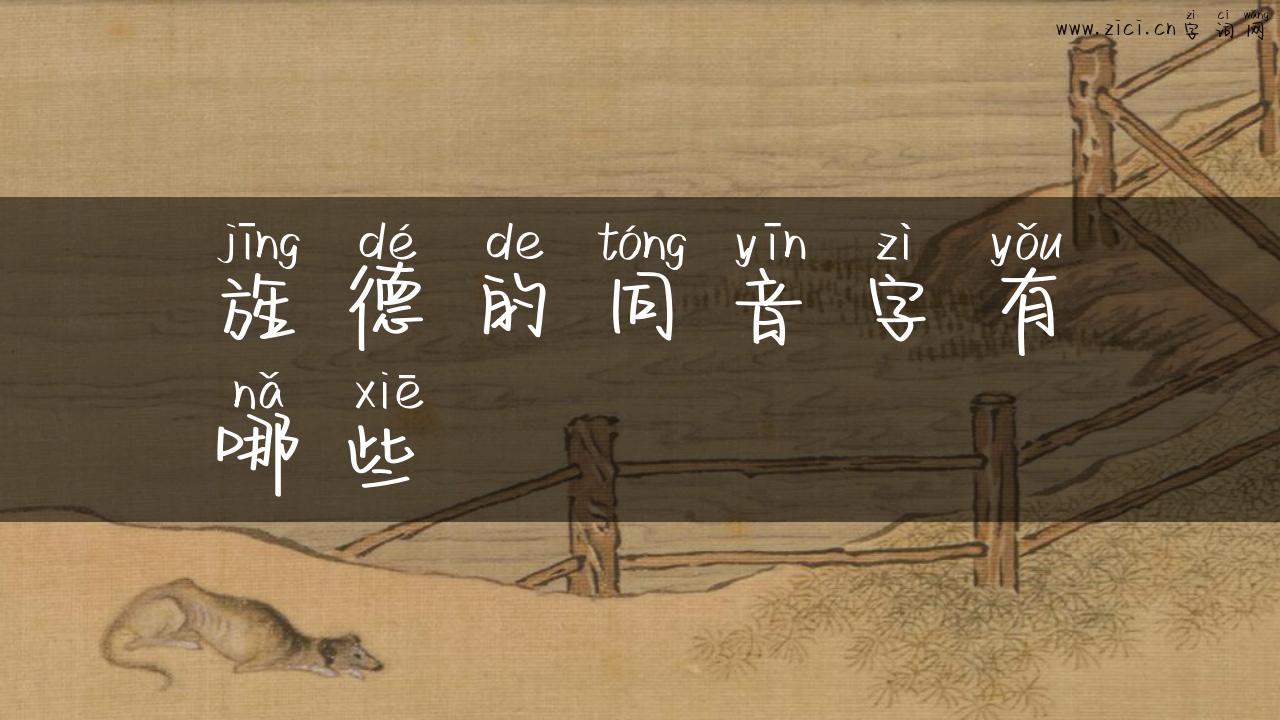 zì cí wǎng
www.zici.cn 字词网
jīng dé de tóng yīn zì yǒu
旌德的同音字有
nǎ xiē
哪些